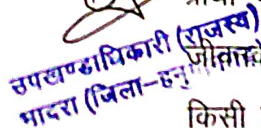 उपखण्डाधिकारी (राजस्व)
भादरा (जिला-हनु
किसी